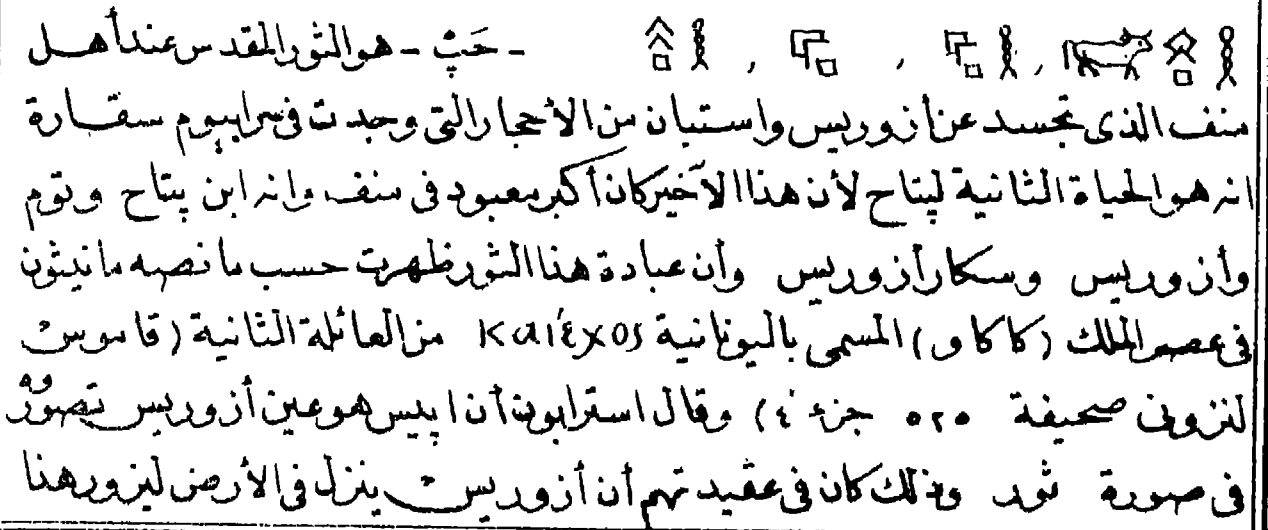 - حَپْ - هو الثور المقدس عند أهل
منف الذى تجسد عن أزوريس واستبان من الأحجار التى وجدت فى سرابيوم سقارة
انه هو الحياة الثانية لپتاح لأن هذا الأخير كان أكبر معبود فى منف وانه ابن پتاح وتوم
وأزوريس وسكار أزوريس وأن عبادة هذا الثور ظهرت حسب ما نصبه مانيثون
فى عصر الملك (كاكاو) المسمى باليونانية Καιέχος من العائلة الثانية (قاموس
لنزونى صحيفة ٥٢٥ جزء ٤) وقال استرابون أن اپيس هو عين أزوريس تصوّر
فى صورة ثور وذلك كان فى عقيدتهم أن أزوريس ينزل فى الأرض ليزورهنا